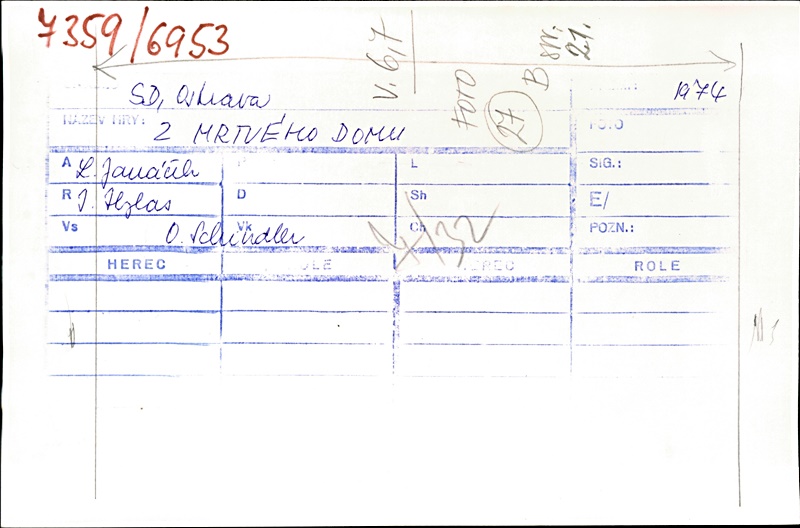 7359/6953
V. 6,7
FOTO
27
B str. 21.
SD, Ostrava
1974
NÁZEV HRY: Z MRTVÉHO DOMU
FOTO
A L. Janáček
L
SIG.:
R I. Hylas
D
Sh
E/
Vs O. Schindler
Vk
Ch
POZN.:
4/32
HEREC ROLE HEREC ROLE